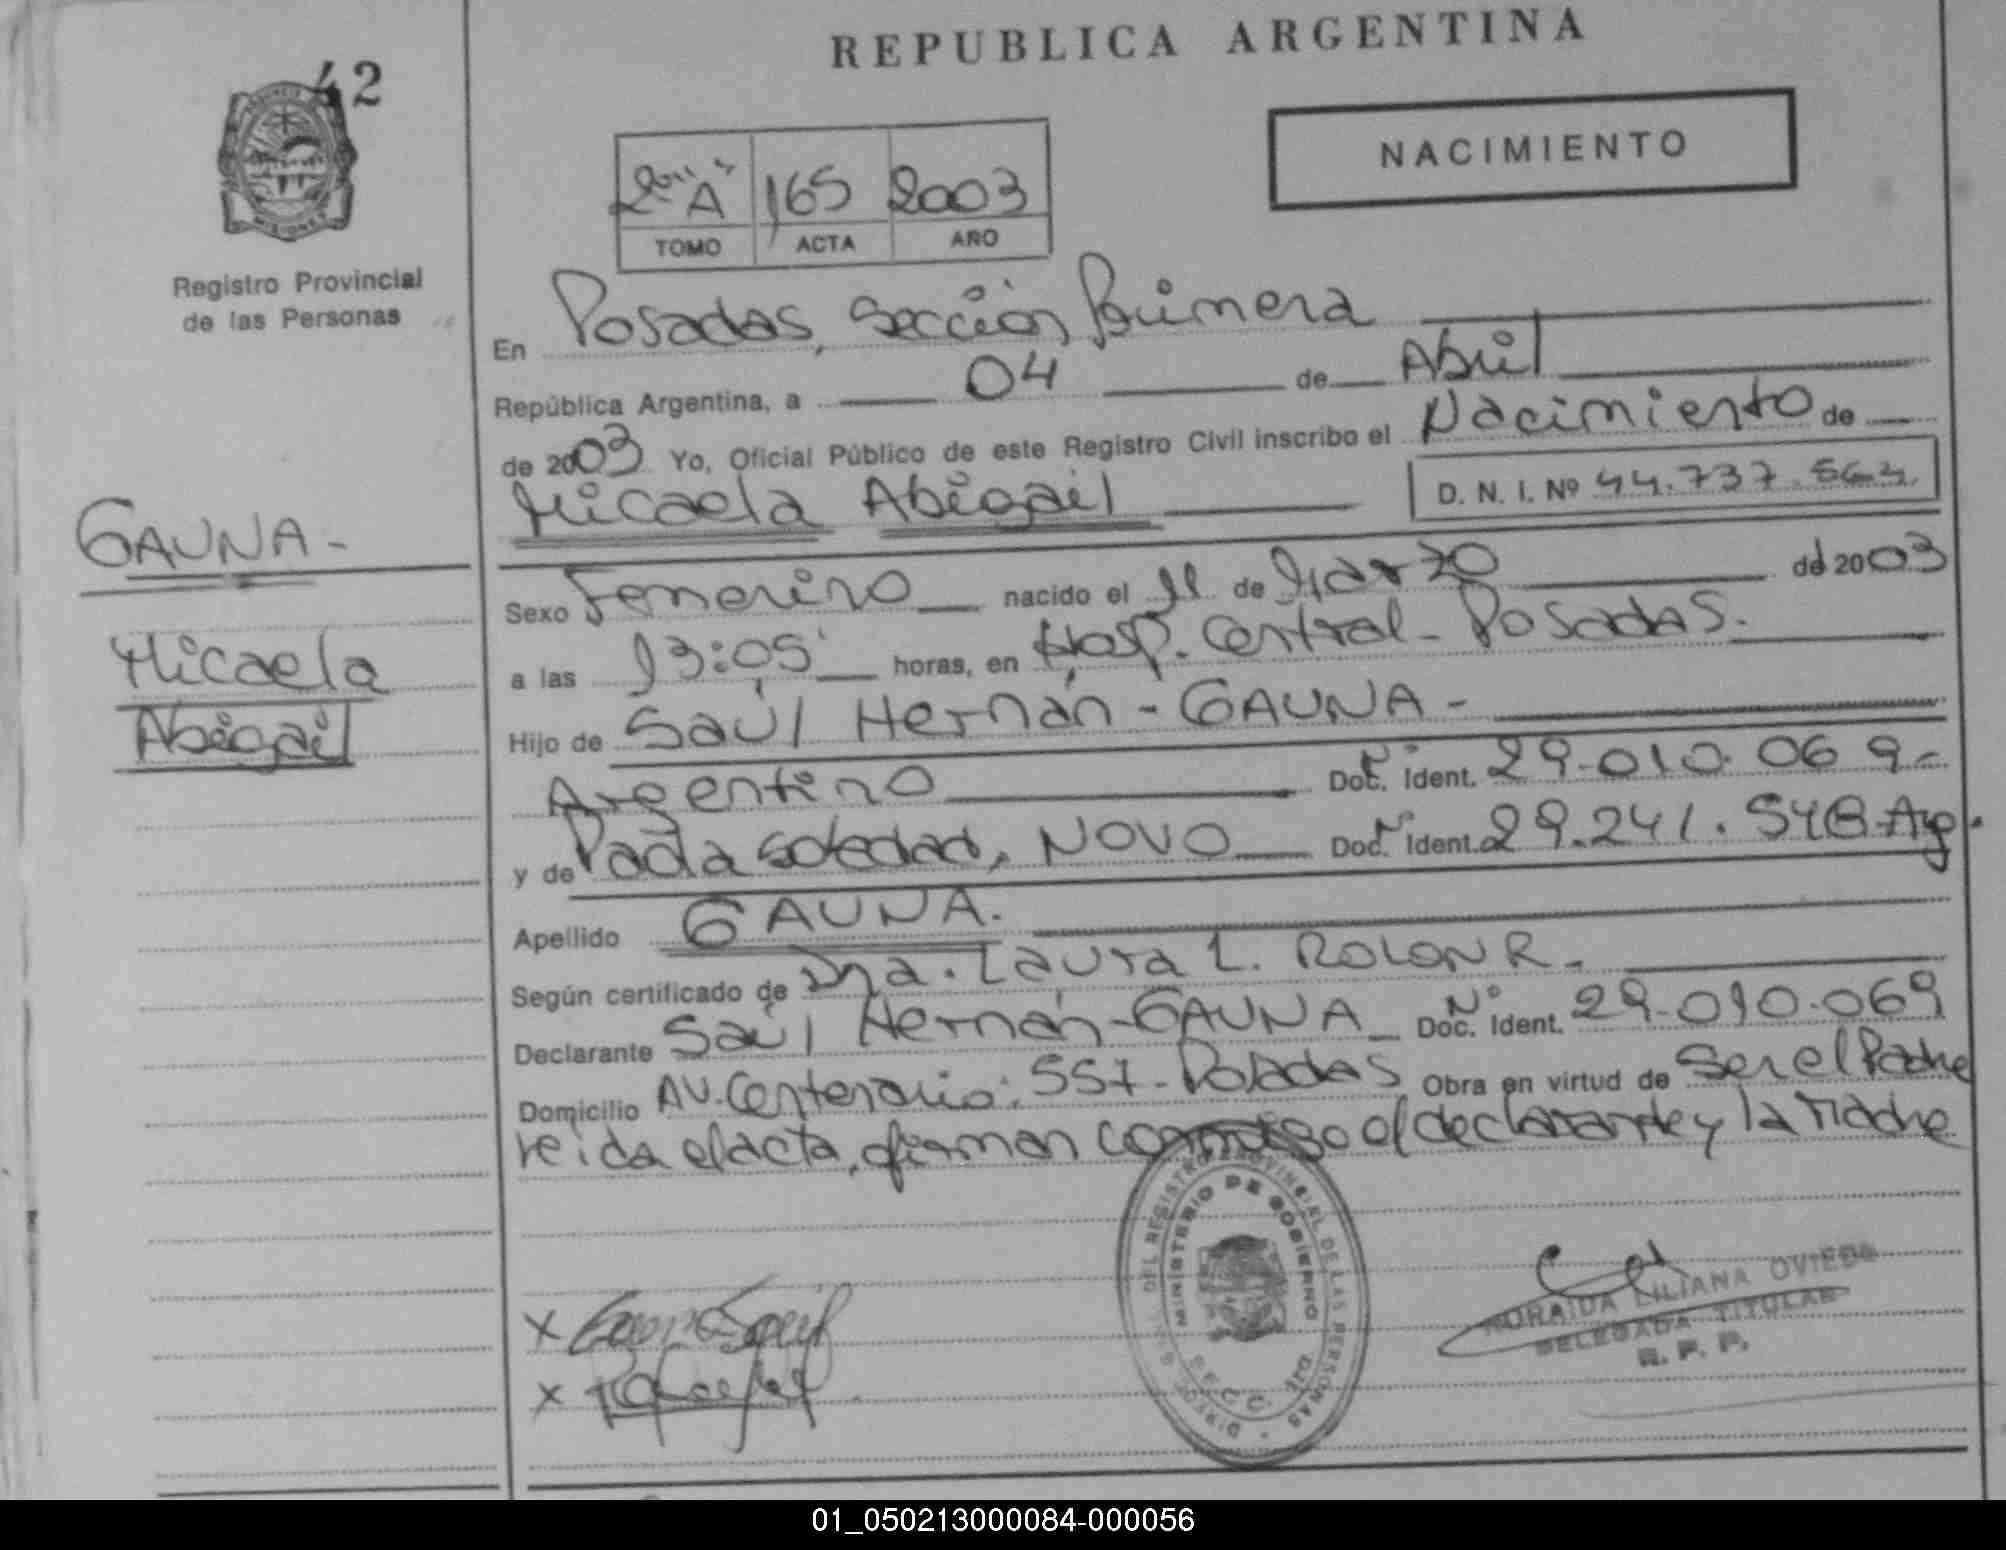 REPUBLICA ARGENTINA
42
NACIMIENTO
2do "A" 165 2003
TOMO ACTA AÑO
Registro Provincial
de las Personas
En Posadas, Sección Primera
República Argentina, a 04 de Abril
de 2003 Yo, Oficial Público de este Registro Civil inscribo el Nacimiento de
Micaela Abigail D. N. I. Nº 44.737.564.
GAUNA-
Micaela
Abigail
Sexo Femenino nacido el 11 de Marzo de 2003
a las 13:05' horas, en Hosp. Central - Posadas.
Hijo de Saúl Hernán - GAUNA -
Argentino Doc. Nº Ident. 29.010.069-
y de Paola Soledad, NOVO Doc. Nº Ident. 29.241.548 Arg.
Apellido GAUNA.
Según certificado de Dra. Laura L. ROLON R.
Declarante Saúl Hernán - GAUNA Doc. Nº Ident. 29.010.069
Domicilio AV. Centenario: 557 - Posadas Obra en virtud de Ser el Padre
leida el acta, firman conmigo el declarante y la Madre
DIREC. GRAL. DEL REGISTRO PROVINCIAL DE LAS PERSONAS
MINISTERIO DE GOBIERNO
x
x
LILIANA OVIEDO
DELEGADA TITULAR
R. P. P.
01_050213000084-000056